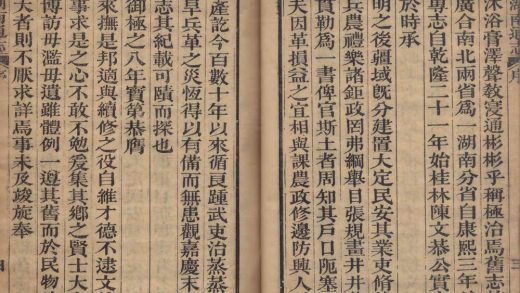 沐浴膏澤聲教寖通彬彬乎稱極治焉舊志
廣合南北兩省為一湖南分省自康熙三年
專志自乾隆二十一年始桂林陳文恭公實
於時承
明之後疆域既分建置大定民安其業吏脩
兵農禮樂諸鉅政罔弗綱舉目張規畫井井
貫勒為一書俾官斯土者周知其戶口阨塞
夫因革損益之宜相與課農政修邊防興人
產訖今百數十年以來循良踵武吏治蒸蒸
旱兵革之災恆得以有備而無患觀嘉慶末
志其紀載可賾而探也
御極之八年寶第恭膺
來撫是邦適與續修之役自維才德不逮文
事求是之心不敢不勉爰集其鄉之賢士大
博訪毋濫毋遺雖體例一遵其舊而於民物
大者則不厭求詳焉事未及竣旋奉
湖南通志
序